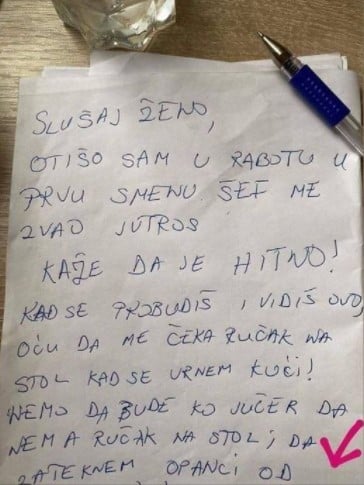 SLUŠAJ ŽENO,
OTIŠO SAM U RABOTU U
PRVU SMENU. ŠEF ME
ZVAO JUTROS
KAŽE DA JE HITNO!
KAD SE PROBUDIŠ I VIDIŠ OVO,
OĆU DA ME ČEKA RUČAK NA
STOL KAD SE VRNEM KUĆI!
NEMO DA BUDE KO JUČER DA
NEMA RUČAK NA STOL; DA
ZATEKNEM OPANCI OD